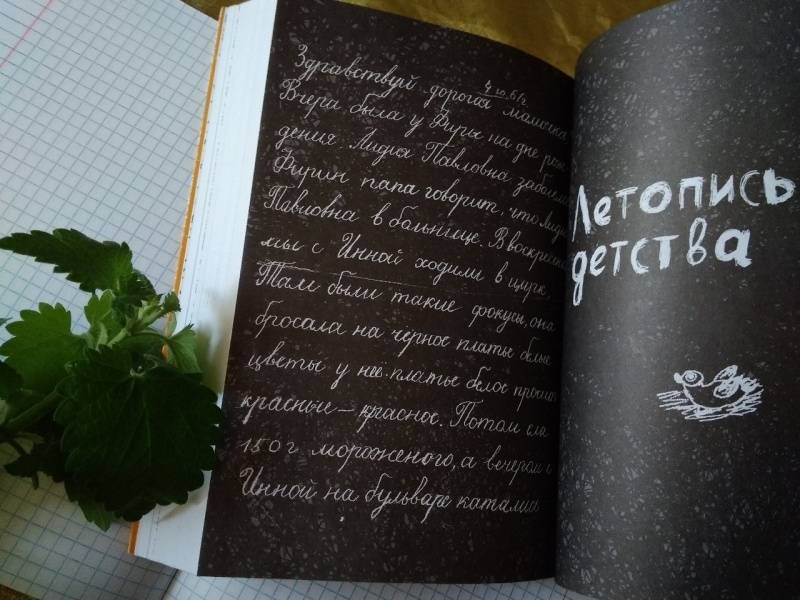 4 10.61г.
Здравствуй дорогая мамочка
Вчера была у Фиры на дне рож
дения. Лидия Павловна заболела
Фирин папа говорит, что Лидия
Павловна в больнице. В воскресенье
мы с Инной ходили в цирк,
Там были такие фокусы, она
бросала на чёрное платье белые
цветы у неё платье белое
красные – красное. Потом ела
150 г мороженого, а вечером с
Инной на бульваре катались
Летопись
детства